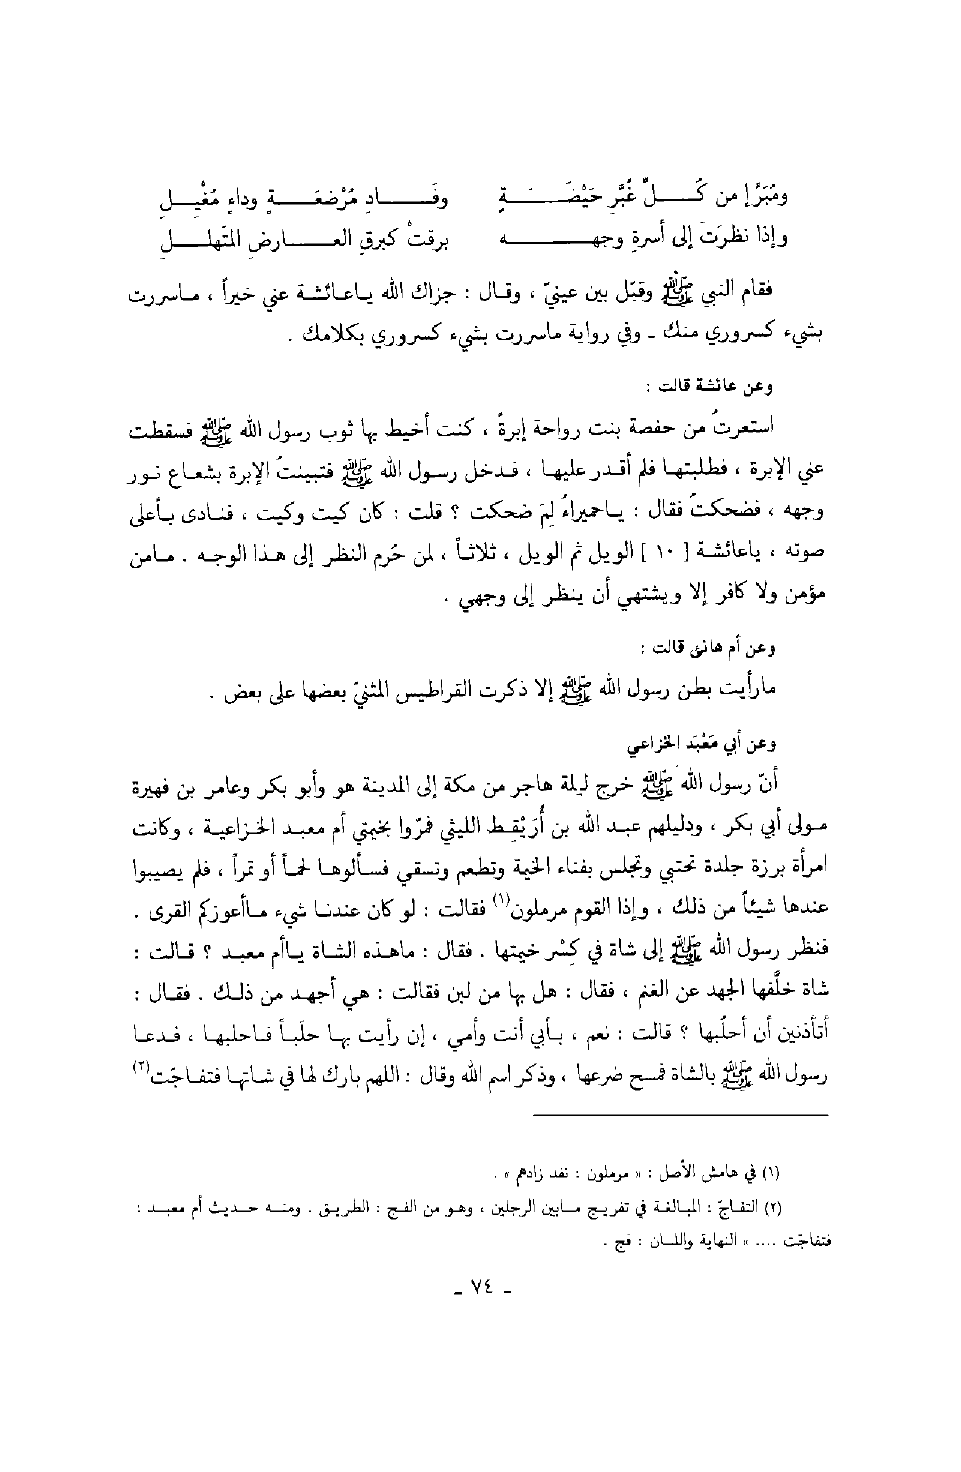 ومُبَرَّإ من كُلِّ غُبَّرِ حَيْضَةٍ وفَسادِ مُرْضعَةٍ وداءٍ مُغْيِلِ
وإذا نظرتَ إلى أسرةِ وجهه برقتْ كبرقِ العارضِ المتَهلِلِ
فقام النبي ﷺ وقبَّل بين عينيّ ، وقال : جزاك الله ياعائشة عني خيراً ، ماسررت
بشيء كسروري منك ـ وفي رواية ماسررت بشيء كسروري بكلامك .
وعن عائشة قالت :
استعرتُ من حفصة بنت رواحة إبرةً ، كنت أخيط بها ثوب رسول الله ﷺ فسقطت
عني الإبرة ، فطلبتها فلم أقدر عليها ، فدخل رسول الله ﷺ فتبينتُ الإبرة بشعاع نور
وجهه ، فضحكتُ فقال : ياحميراءُ لِمَ ضحكت ؟ قلت : كان كيت وكيت ، فنادى بأعلى
صوته ، ياعائشة [ ١٠ ] الويل ثم الويل ، ثلاثاً ، لمن حُرم النظر إلى هذا الوجه . مامن
مؤمن ولا كافر إلا ويشتهي أن ينظر إلى وجهي .
وعن أم هانئ قالت :
مارأيت بطن رسول الله ﷺ إلا ذكرت القراطيس المثنيّ بعضها على بعض .
وعن أبي مَعْبَد الخزاعي
أنّ رسول الله ﷺ خرج ليلة هاجر من مكة إلى المدينة هو وأبو بكر وعامر بن فهيرة
مولى أبي بكر ، ودليلهم عبد الله بن أُرَيْقِط الليثي فمرّوا بخيمتي أم معبد الخزاعية ، وكانت
امرأة برزة جلدة تحتبي وتجلس بفناء الخيمة وتطعم وتسقي فسألوها لحماً أو تمراً ، فلم يصيبوا
عندها شيئاً من ذلك ، وإذا القوم مرملون(١) فقالت : لو كان عندنا شيء ماأعوزكم القرى .
فنظر رسول الله ﷺ إلى شاة في كِسْر خيمتها . فقال : ماهذه الشاة ياأم معبد ؟ قالت :
شاة خلَّفها الجهد عن الغنم ، فقال : هل بها من لبن فقالت : هي أجهد من ذلك . فقال :
أتأذنين أن أحلُبها ؟ قالت : نعم ، بأبي أنت وأمي ، إن رأيت بها حلَباً فاحلبها ، فدعا
رسول الله ﷺ بالشاة فمسح ضرعها ، وذكر اسم الله وقال : اللهم بارك لها في شاتها فتفاجّت(٢)
(١) في هامش الأصل : « مرملون : نفد زادهم » .
(٢) التفاجّ : المبالغة في تفريج مابين الرجلين ، وهو من الفج : الطريق . ومنه حديث أم معبد :
فتفاجّت .... » النهاية واللسان : فج .
ـ ٧٤ ـ